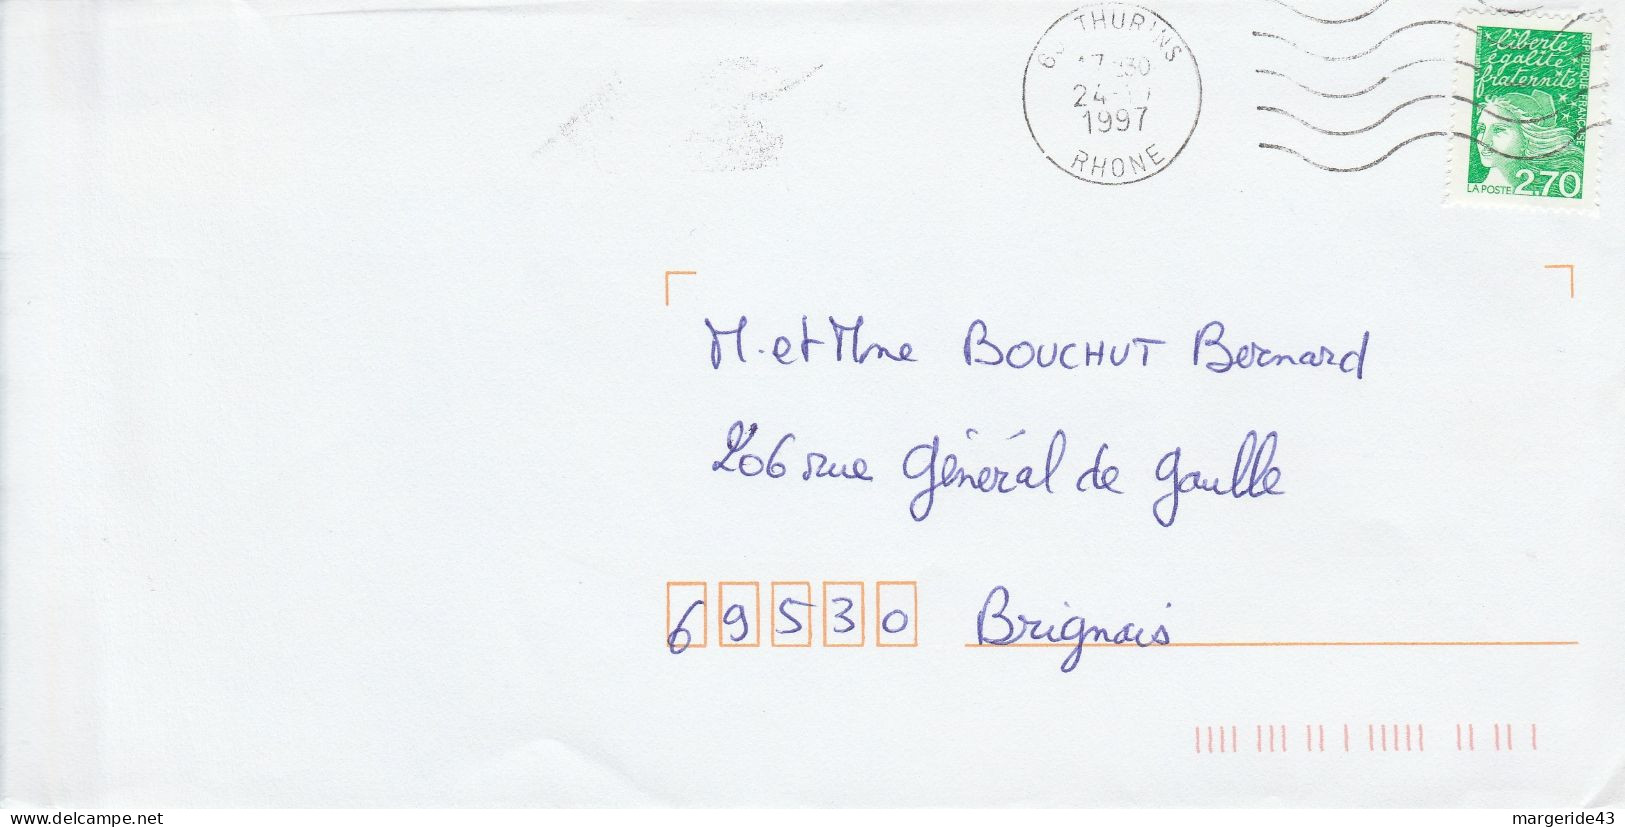 THURINS
1997
RHONE
liberté
égalité
fraternité
REPUBLIQUE FRANÇAISE
LA POSTE 2,70
M. et Mme BOUCHUT Bernard
206 rue Général de Gaulle
69530 Brignais
www.delcampe.net
margeride43